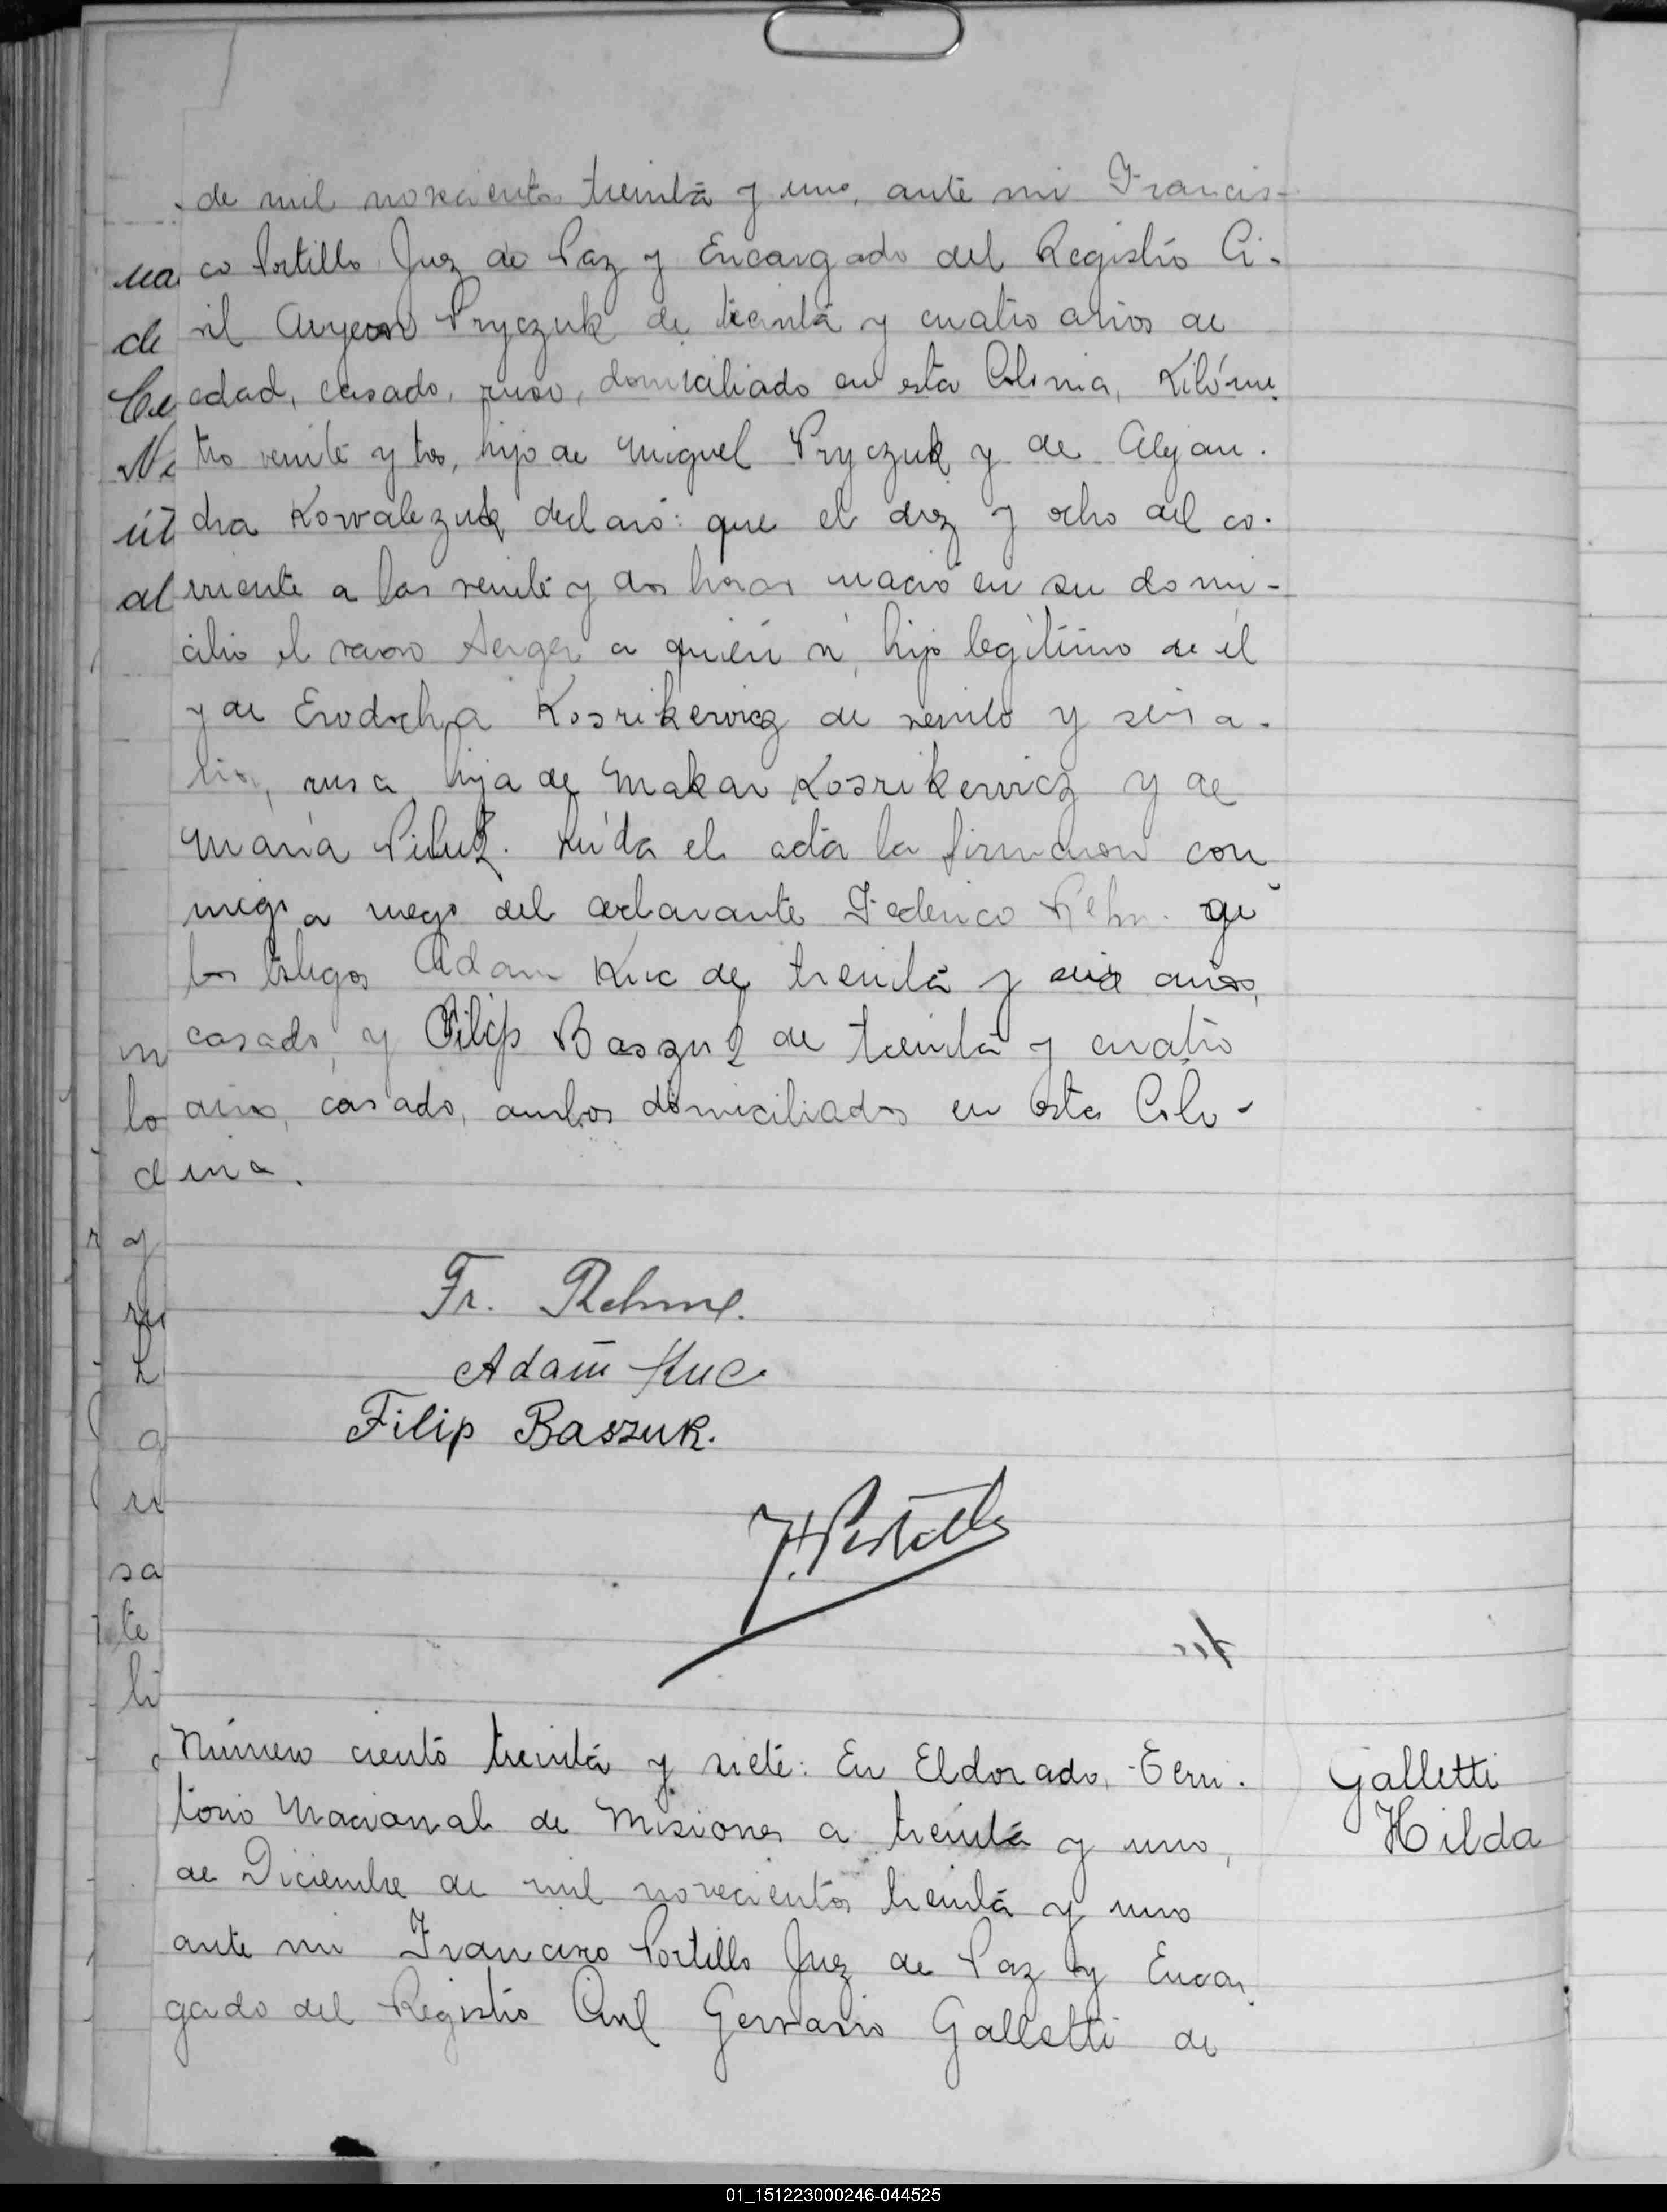 de mil novecientos treinta y uno, ante mi Francis-
co Portillo Juez de Paz y Encargado del Registro Ci-
vil Pryczuk de treinta y cuatro años de
edad, casado, ruso, domiciliado en esta Colonia, Kilóme-
tro veinte y tres, hijo de Miguel Pryczuk y de Alejan-
dra Kowalczuk declaró: que el diez y ocho del co-
rriente a las veinte y dos horas nació en su domi-
cilio el varon Sergei a quién ví, hijo legítimo de él
y de Kosrikewicz de veinte y seis a-
ños, rusa, hija de Makar Kosrikewicz y de
María Leída el acta la firmaron con
migo a ruego del declarante Federico Rehm.
los testigos Adam Kuc de treinta y seis años,
casado, y Filip Baszuk de treinta y cuatro
años, casado, ambos domiciliados en esta Colo-
nia.
Fr. Rehme.
Adam Kuc
Filip Baszuk.
F. Portillo
Número ciento treinta y siete: En Eldorado, Terri-
torio Nacional de Misiones a treinta y uno,
de Diciembre de mil novecientos treinta y uno
ante mi Francisco Portillo Juez de Paz y Encar-
gado del Registro Civil Gervasio Galletti de
Galletti
Hilda
01_151223000246-044525